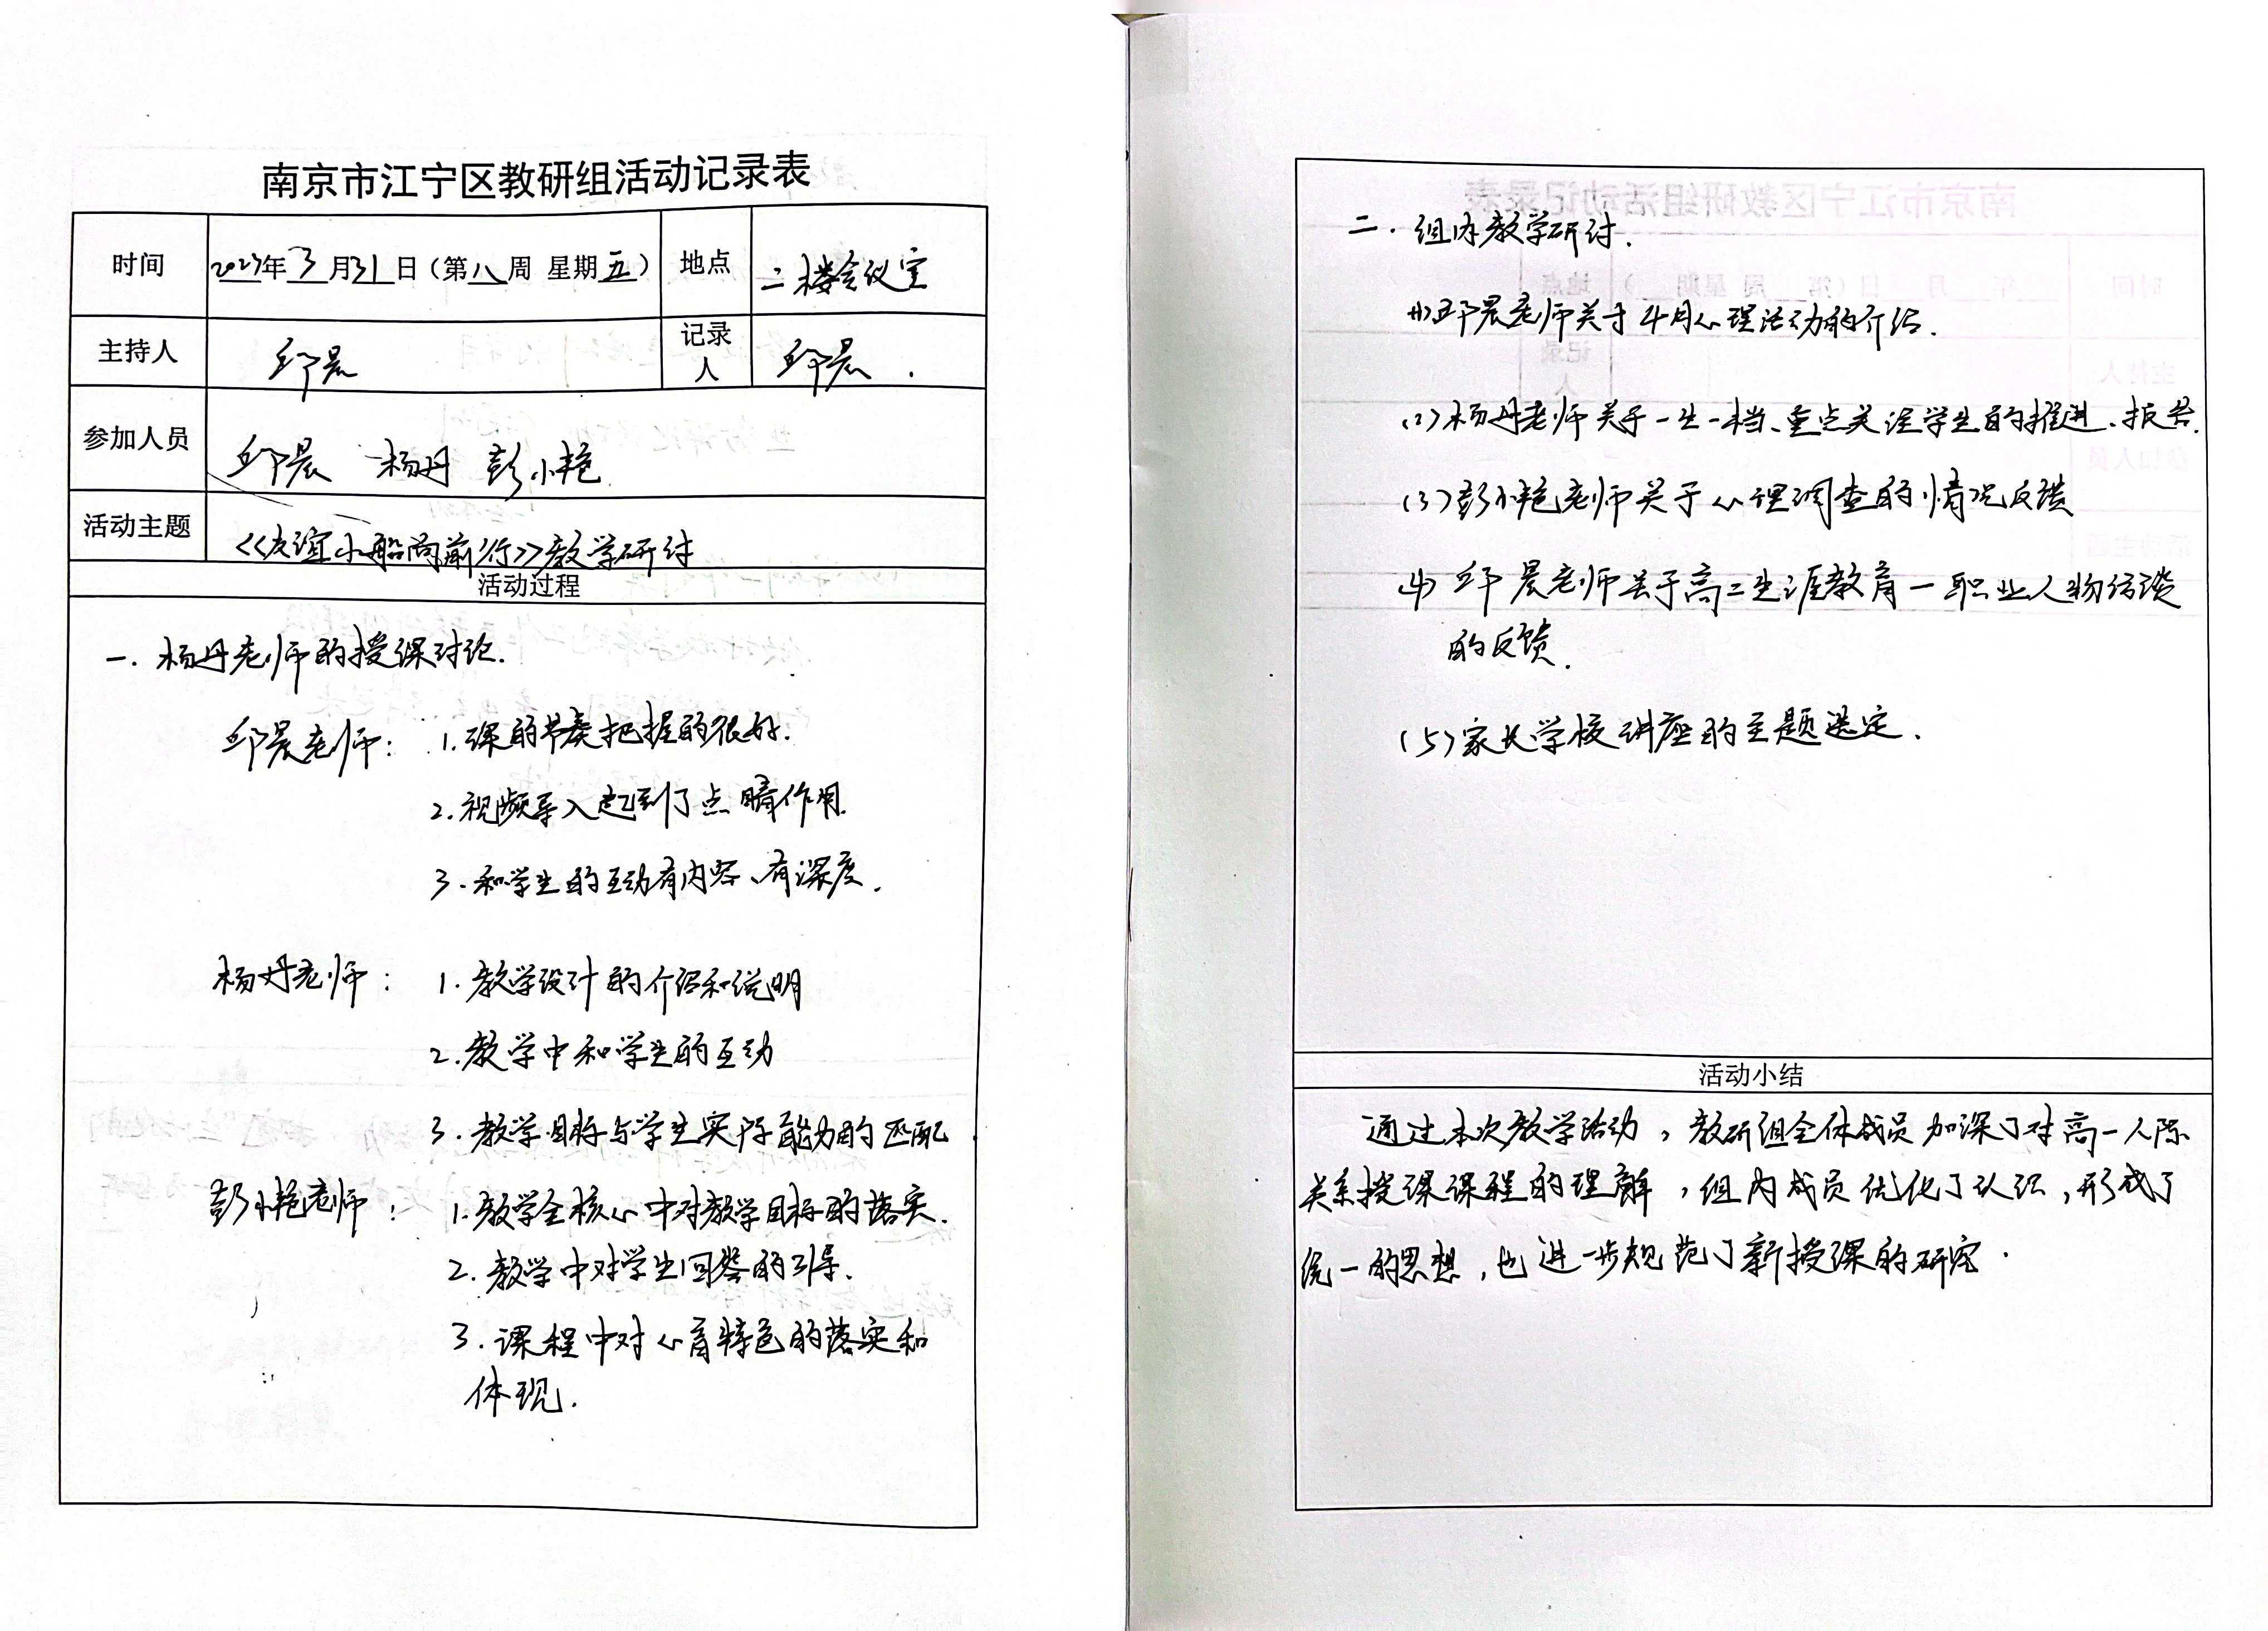 南京市江宁区教研组活动记录表
时间 2023年3月31日（第八周 星期五） 地点 二楼会议室
主持人 邱晨 记录人 邱晨.
参加人员 邱晨 杨丹 彭小艳
活动主题 《友谊小船向前行》教学研讨
活动过程
一. 杨丹老师的授课讨论.
邱晨老师: 1.课的节奏把握的很好.
2.视频导入起到了点睛作用.
3.和学生的互动有内容、有深度.
杨丹老师: 1.教学设计的介绍和说明
2.教学中和学生的互动
3.教学目标与学生实际能力的匹配
彭小艳老师: 1.教学全核心中对教学目标的落实.
2.教学中对学生回答的引导.
3.课程中对心育特色的落实和
体现.
二. 组内教学研讨.
(1)邱晨老师关于4月心理活动的介绍.
(2)杨丹老师关于一生一档、重点关注学生的推进、报告.
(3)彭小艳老师关于心理调查的情况反馈
(4)邱晨老师关于高二生涯教育一职业人物访谈
的反馈.
(5)家长学校讲座的主题选定.
活动小结
通过本次教学活动，教研组全体成员加深了对高一人际
关系授课课程的理解，组内成员优化了认识，形成了
统一的思想，也进一步规范了新授课的研究.